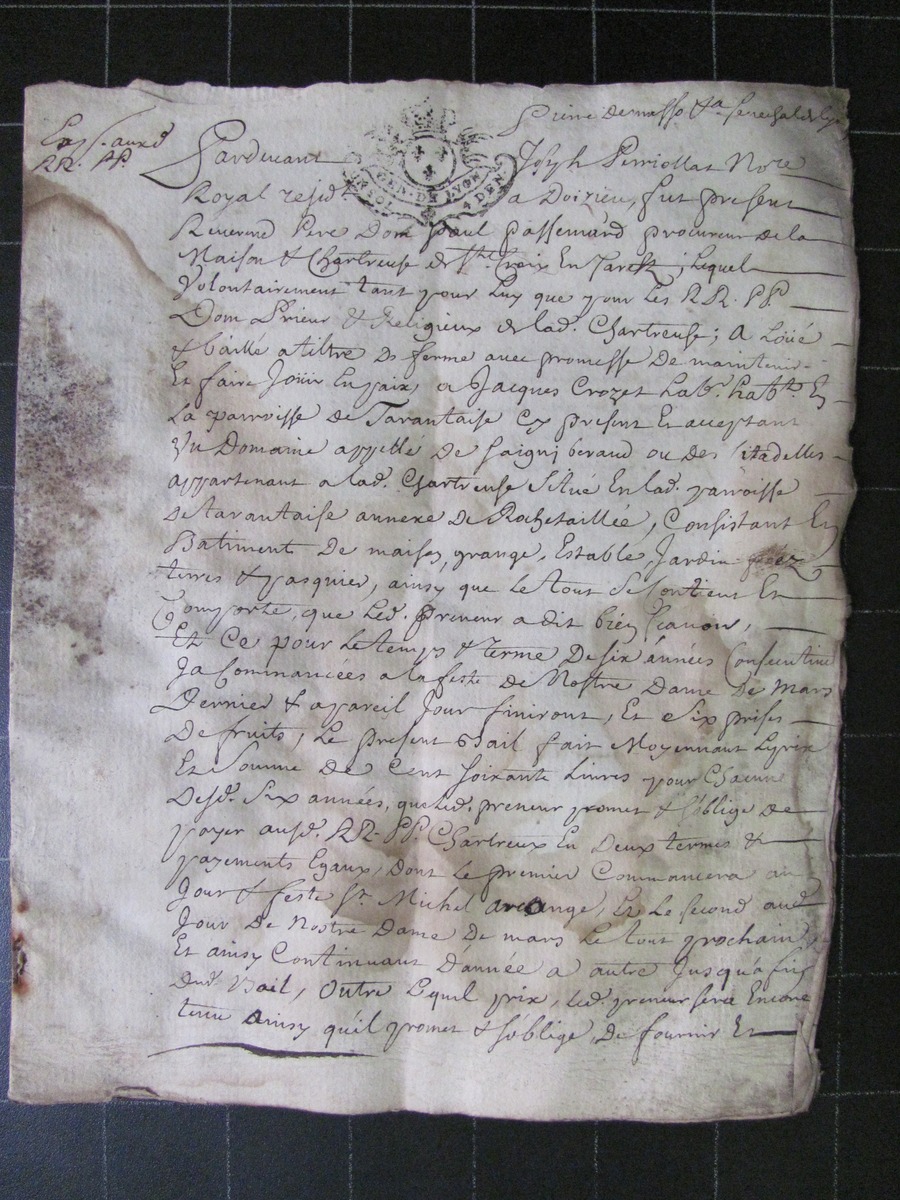 Pierre demasso &a senechal de Lyon
Exp. auxd.
RR. PP.
GEN. DE LYON
4 DEN.
Pardevant Joseph Perriollat Nore
Royal resid.t a Doizieu, fut present
Reverend Pere Dom paul passemard procureur de la
Maison & Chartreuse de S.te Croix En Jarest, Lequel
Volontairement tant pour Luy que pour Les RR. PP
Dom Prieur & Religieux de lad. Chartreuse; A Loüé
& baillé a tiltre de ferme avec promesse de maintenir
Et faire Joüir En paix, a Jacques Crozet Lab.r hab.t En
La parroisse de Tarantaise Cy present Et acceptant
Un Domaine appellé de saigniberaud ou des Citadelles
appartenant a lad. Chartreuse Situé En lad. parroisse
de tarantaise annexe de Rochetaillée, Consistant En
Batiment de maison, grange, Estable, Jardin prèz
terres & pasquier, ainsy que le tout se Contient Et
Comporte, que Led. preneur a dit bien scavoir,
Et Ce pour Le temps & terme De six années Consecutive
Ja Commancées a la feste de Nostre Dame De Mars
Dernier & a pareil Jour finiront, Et Six prises
De fruits, Le present Bail fait Moyennant Le prix
Et Somme De Cent soixante Livres pour Chacune
Desd. Six années, que Led. preneur promet & s'oblige de
payer ausd. RR. PP. Chartreux En Deux termes &
payements Egaux, Dont Le premier Commancera au
Jour & feste S.t Michel arcange, Et Le second aud.
Jour De Nostre Dame De mars Le tout prochain
Et ainsy Continuant D'année a autre Jusqu'a fin
Dud. Bail, Outre Lequel prix, Led. preneur sera Encore
tenu ainsy qu'il promet & s'oblige, De fournir Et